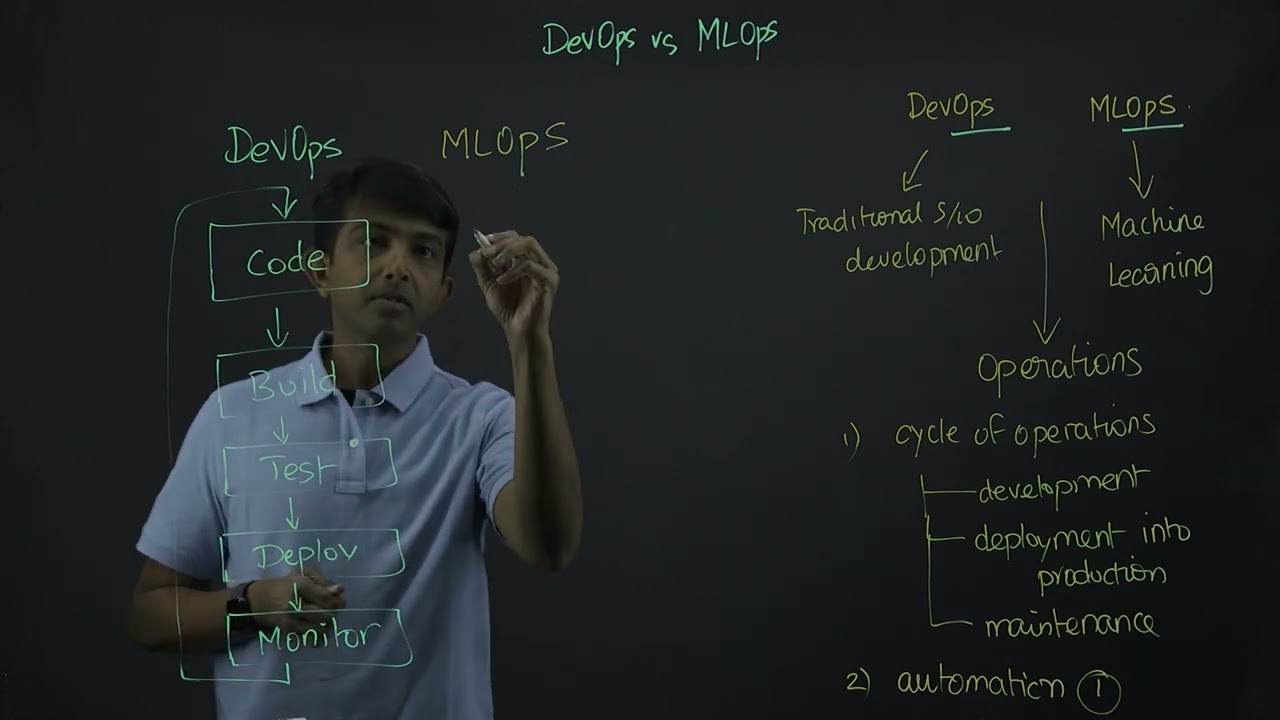 DevOps vs MLOps
DevOps
MLOps
Code
Build
Test
Deploy
Monitor
DevOps
MLOps
Traditional S/W
development
Machine
Learning
Operations
1) cycle of operations
development
deployment into
production
maintenance
2) automation 1